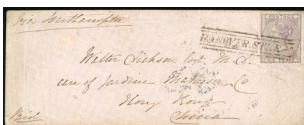 via Southampton
POSTAGE
Walter Dickson Esq. M.D.
care of Jardine Matheson & Co
Hong Kong
China